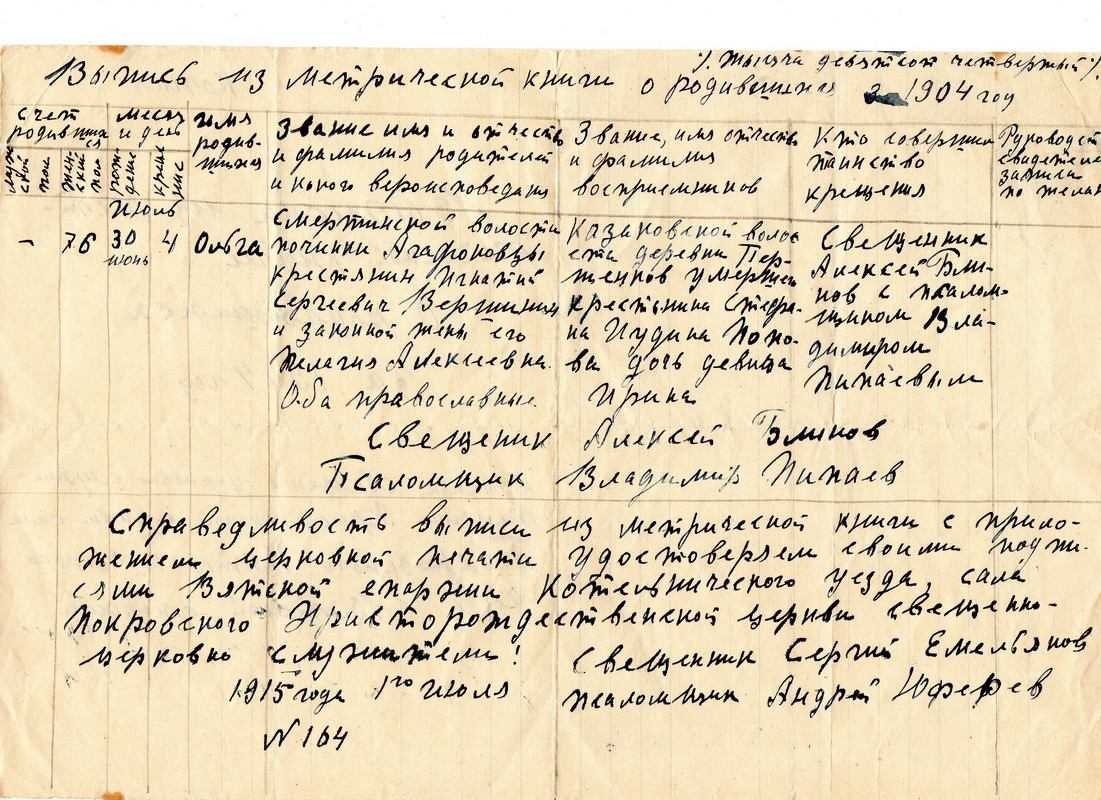 /. тысяча девятсот четвертый /.
Выпись из метрической книги о родившихся за 1904 год
Счет родившихся
мужеской пол
женский пол
месяц и день
рождение
крещение
имя родив-шихся
Звание имя и отчеств
и фамилия родителей
и какого вероисповедания
Звание, имя отчеств
и фамилия
восприемников
Кто совершил
таинство
крещения
Руководст
свидетеле
записи
по желан
- 76 30 июнь
июль 4
Ольга
Смертинской волости
починки Агафоновцы
крестянин Игнатий
Сергеевич Вершинин
и законной жены его
Пелагия Алексеевна.
Оба православные.
Казаковской воло
ста деревни Пер-
шенков умерш
крестьянина Стефа-
на Иудина Попо-
ва дочь девица
Ирина
Свещенник
Алексей Бли-
нов с псалом-
щиком Вла-
димиром
Пипаевым
Свещеник Алексей Блинов
Псаломщик Владимир Пипаев
Справедливость выписи из метрической книги с прило-
жением церковной печати удостоверяем своими подпи-
сями Вятской епархии Котельнического уезда, сала
Покровского Христорождественской церкви свещенно-
церковно служители!
Свещенник Сергий Емельянов
1915 года 1го июля
псаломщик Андрей Юферев
N 164